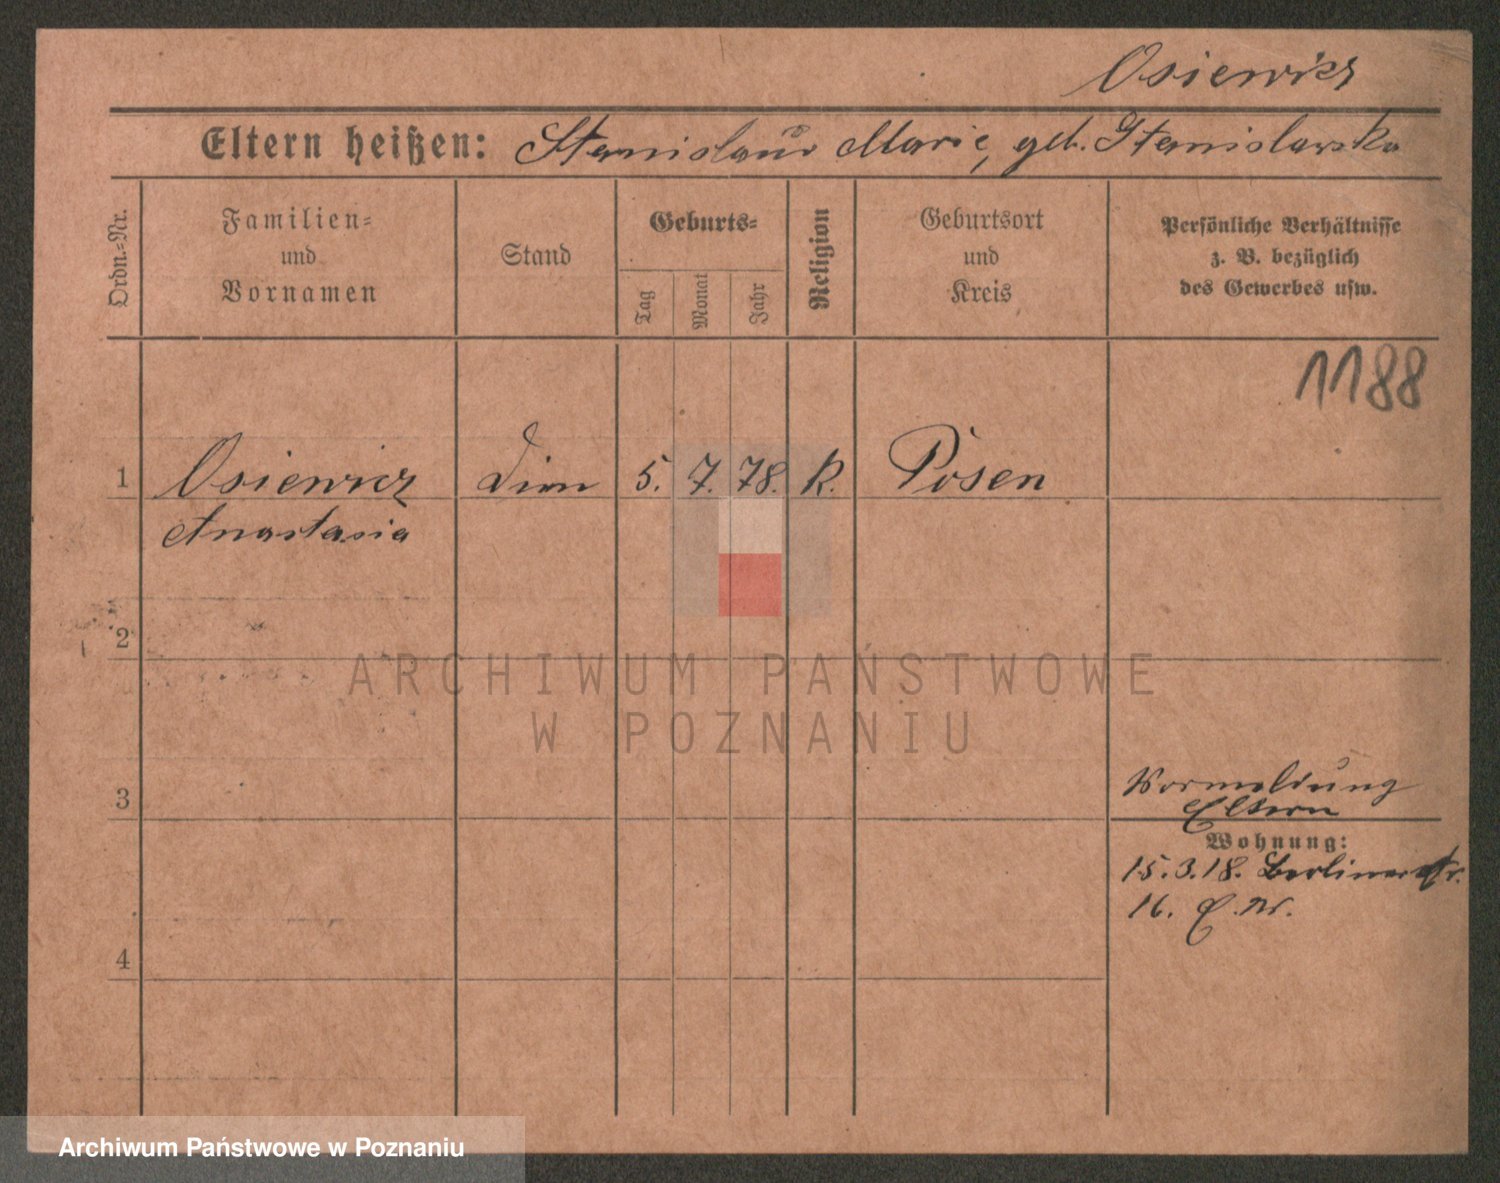 Osiewicz
Eltern heißen: Stanislaus Marie, geb. Stanislawska
Ordn.-Nr.
Familien-
und
Vornamen
Stand
Geburts-
Tag
Monat
Jahr
Religion
Geburtsort
und
Kreis
Persönliche Verhältnisse
z. B. bezüglich
des Gewerbes usw.
1188
1 Osiewicz Dirn 5. 7. 78. K. Posen
Anastasia
2
ARCHIWUM PAŃSTWOWE
W POZNANIU
3
Vormeldung
Eltern
Wohnung:
15.3.18. Berlinerstr.
16.
4
Archiwum Państwowe w Poznaniu